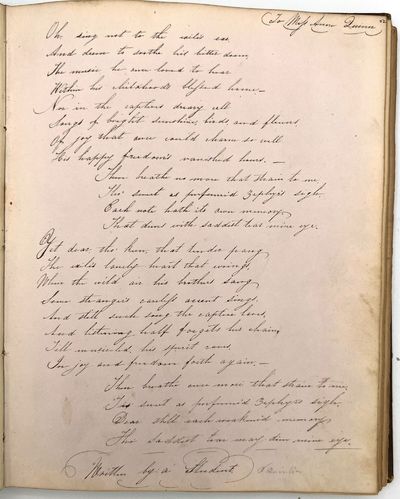 To Miss Anna Quinn
Oh sing not to the exile's ear,
And deem to soothe his bitter doom,
The music he once loved to hear
Within his childhood's blessed home—
Nor in the captive's dreary cell
Songs of bright sunshine, birds, and flowers,
Of joy that once could charm so well
His happy freedom's vanished hours.—
Then breathe no more that strain to me
Tho' sweet as perfumed Zephyr's sigh
Each note hath its own memory
That dims with saddest tear mine eye.
Yet dear, tho' keen, that tender pang
The exile's lonely heart that wrings,
When the wild air his brothers sang
Some stranger's careless accent sings.
And still such song the captive loves,
And listening half forgets his chain,
Till his spirit roves
In joy and freedom forth again,—
Then breathe once more that strain to me,
Tis sweet as perfumed Zephyr's sigh.
Dear still each wakened memory
Tho' saddest tear may dim mine eye.
Written by a Student